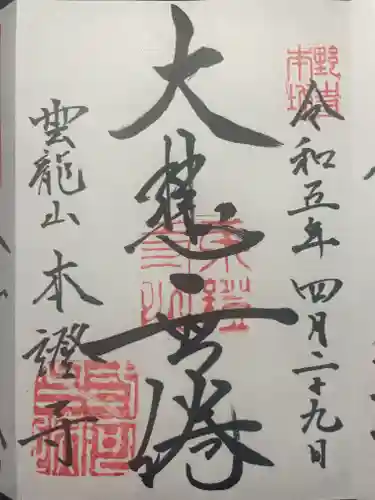 令和五年四月二十九日
大悲無倦
雲龍山 本證寺
野寺
本坊